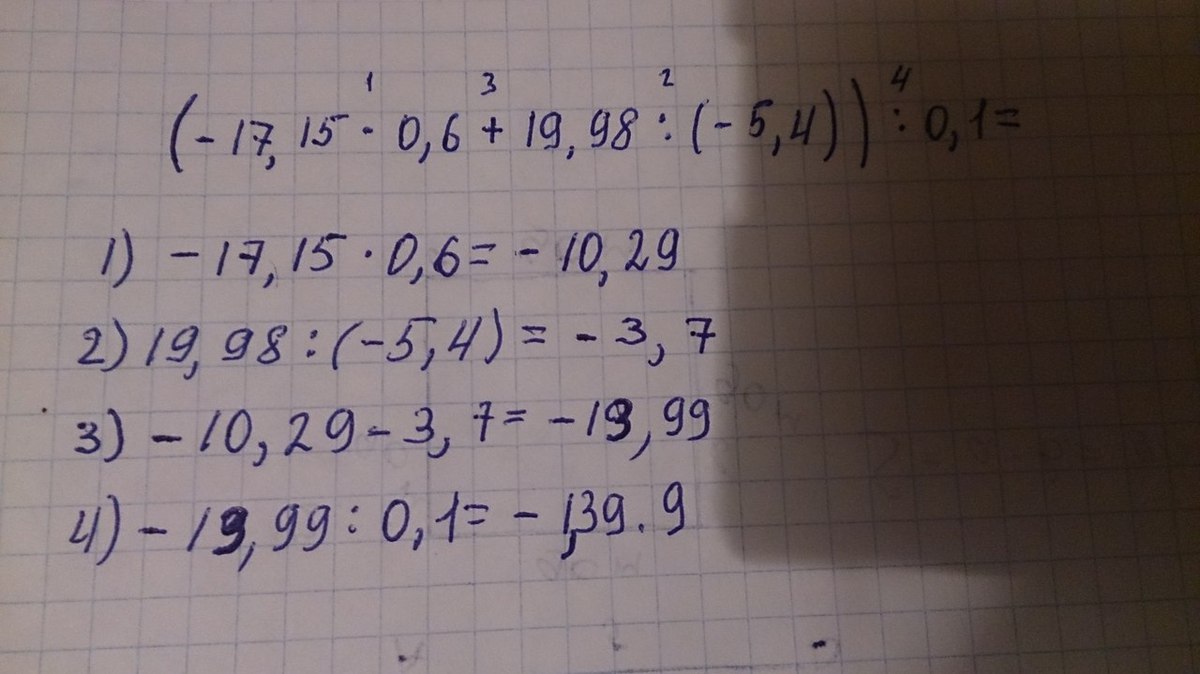 1 3 2 4
(-17,15 · 0,6 + 19,98 : (-5,4)) : 0,1=
1) -17,15 · 0,6 = -10,29
2) 19,98 : (-5,4) = -3,7
3) -10,29 - 3,7 = -13,99
4) -13,99 : 0,1 = -139.9